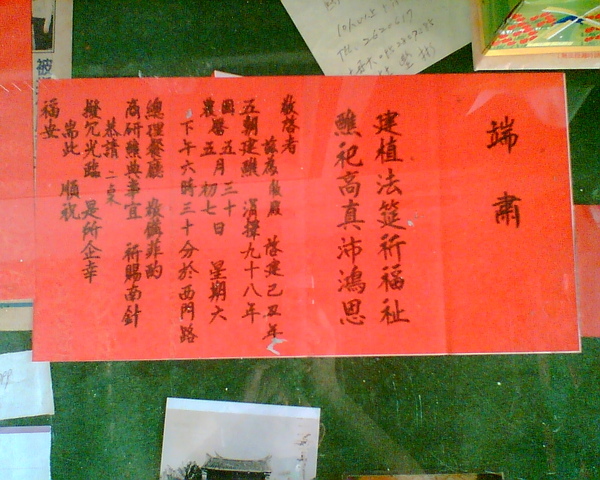 端肅
建植法筵祈福祉
醮祀高真沛鴻恩
敬啓者
啓建己丑年
五朝建醮 涓擇九十八年
國曆五月三十
農曆五月初七日 星期六
下午六時三十分於西門路
總理餐廳 敬備菲酌
商研醮典事宜 祈賜南針
恭請
撥冗光臨 是所企幸
耑此 順祝
福安